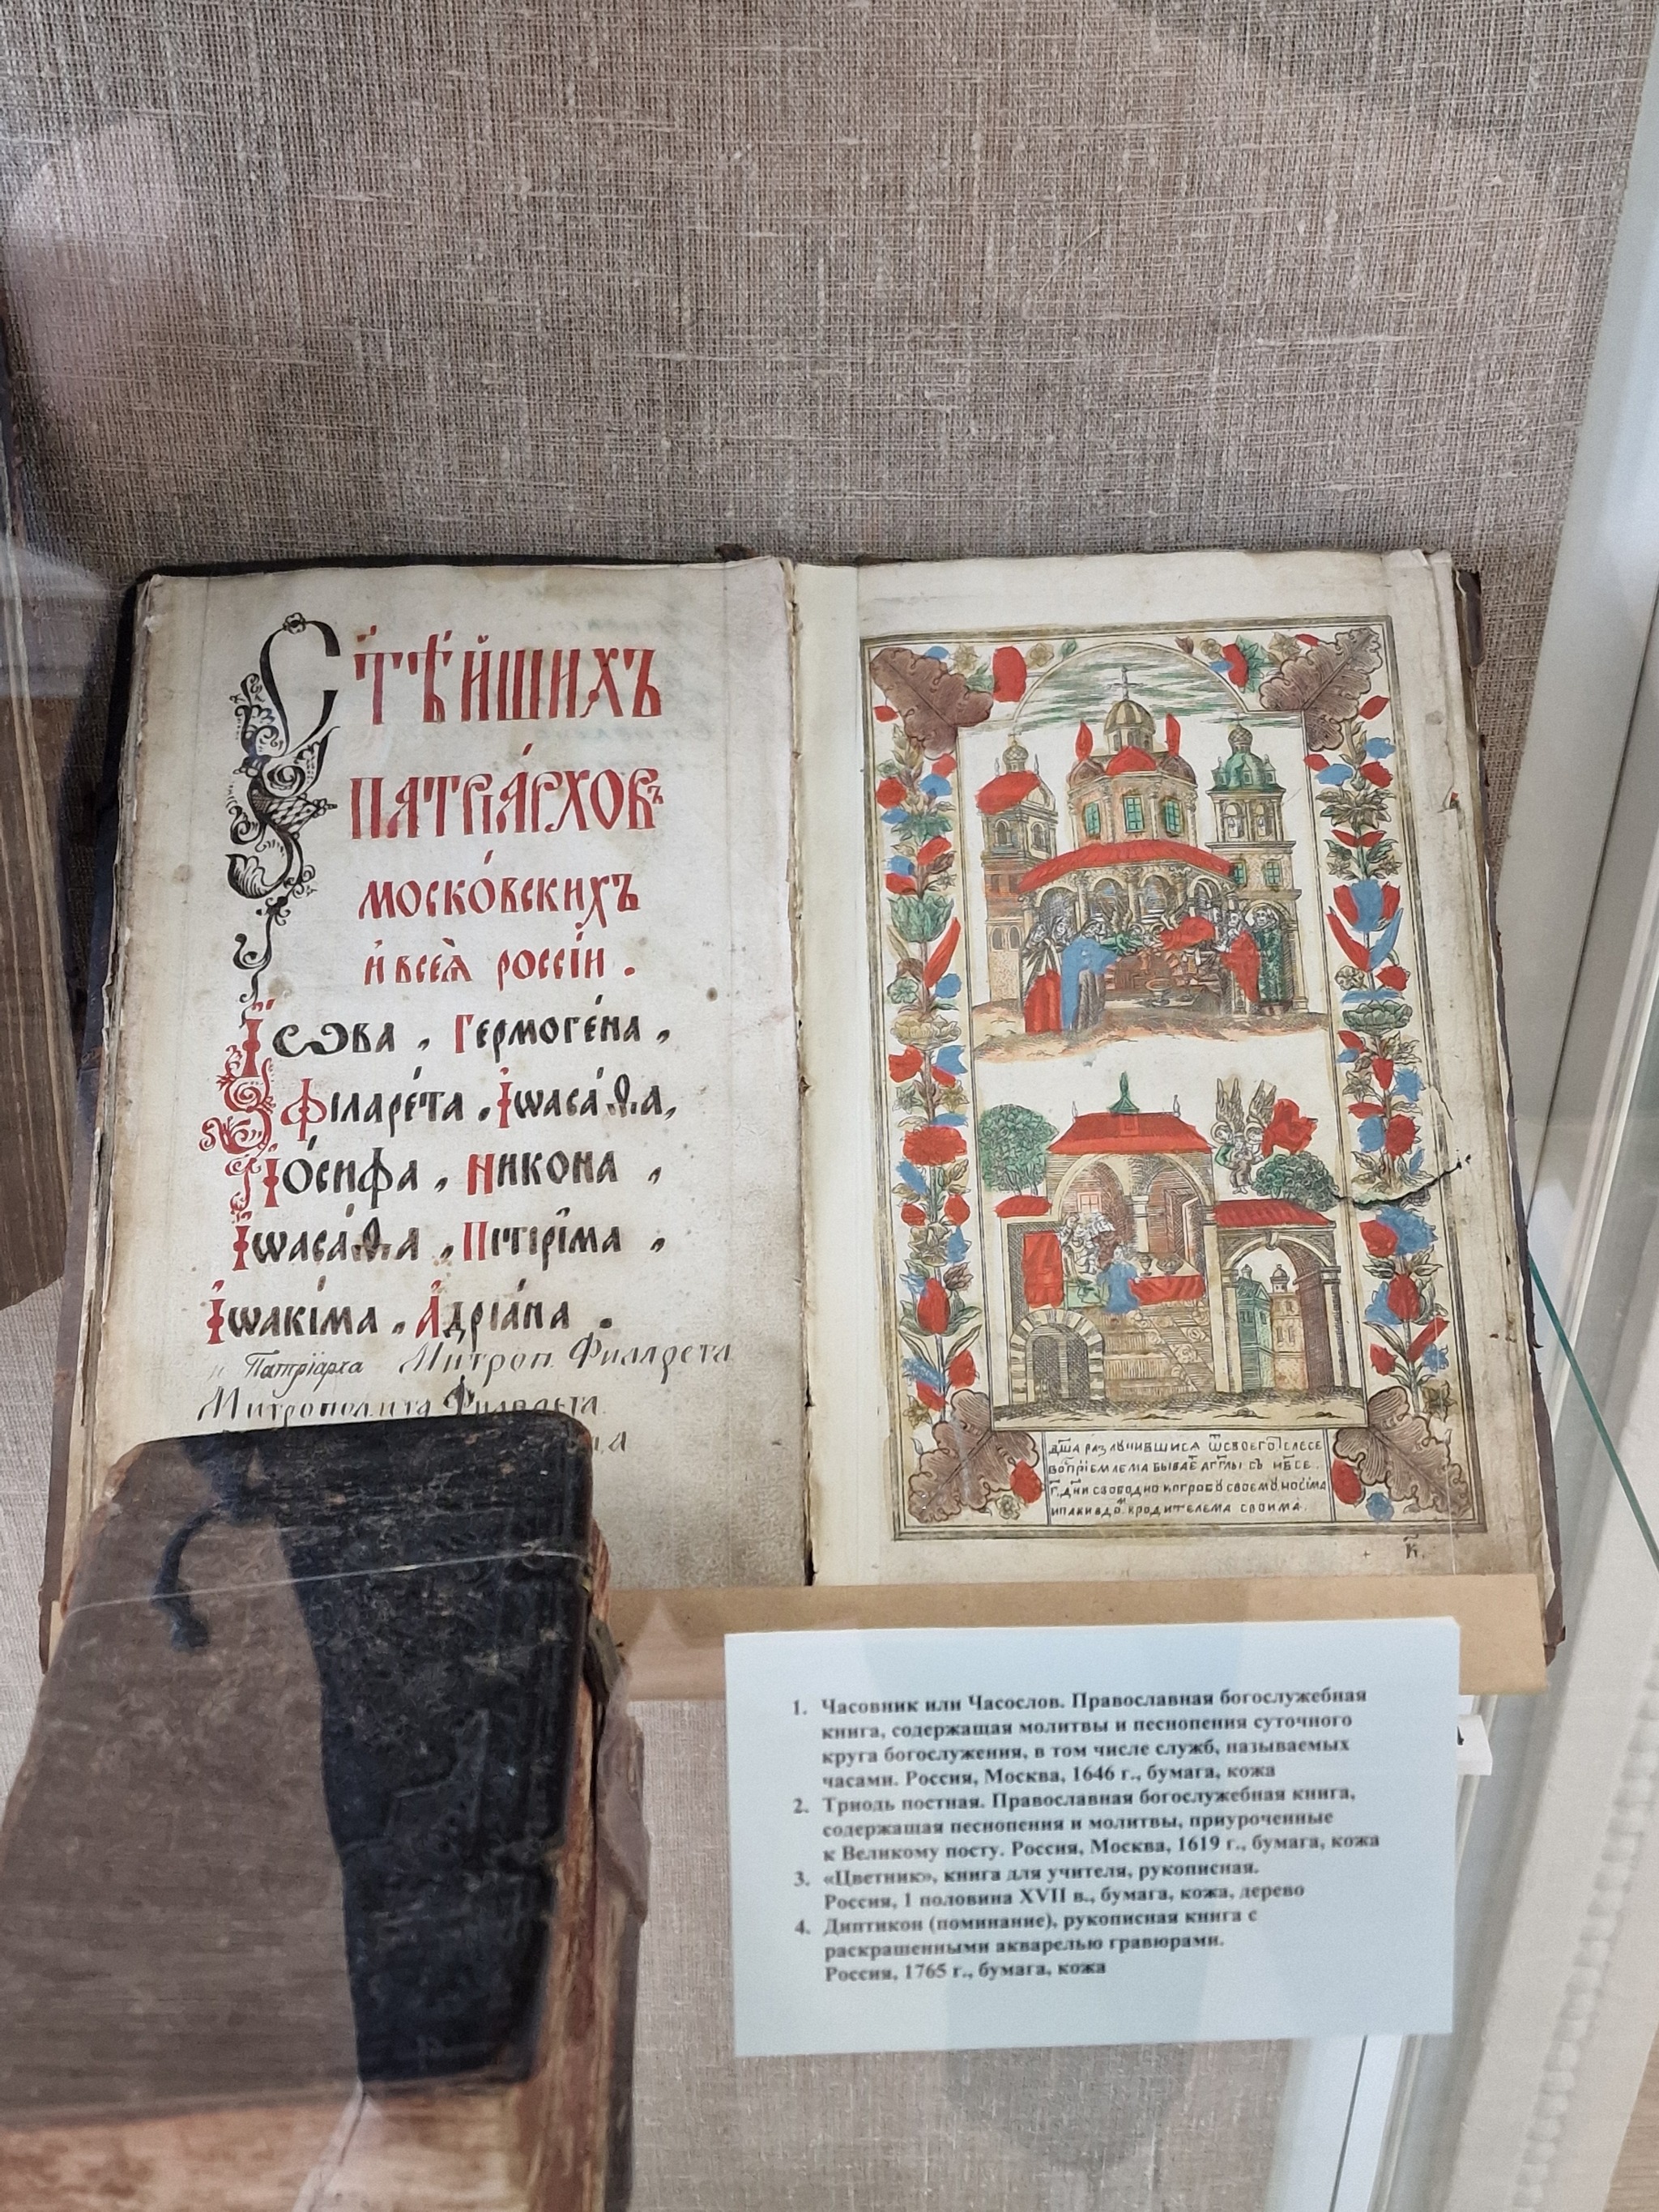 Ст҃ѣйшихъ
патрїа́рховъ
моско́вскихъ
и всеѧ̀ россіи .
Іѡва , Гермоге́на ,
Філаре́та , Іѡаса́ѳа ,
Іо́сифа , Никона ,
Іѡаса́ѳа , Пітірі́ма ,
Іѡакі́ма , Адріа́на .
и Патрїарха Митроп. Филарета
Митрополита Филарета
дш҃а разлꙋчившиса ѿ своего телесе
воспріемлема бывае аг҃глы съ нб҃се .
г҃ дни свободно ко гробꙋ своемꙋ носіма
и паки в до кродителема своима .
к҃.
1. Часовник или Часослов. Православная богослужебная
книга, содержащая молитвы и песнопения суточного
круга богослужения, в том числе служб, называемых
часами. Россия, Москва, 1646 г., бумага, кожа
2. Триодь постная. Православная богослужебная книга,
содержащая песнопения и молитвы, приуроченные
к Великому посту. Россия, Москва, 1619 г., бумага, кожа
3. «Цветник», книга для учителя, рукописная.
Россия, 1 половина XVII в., бумага, кожа, дерево
4. Диптикон (поминание), рукописная книга с
раскрашенными акварелью гравюрами.
Россия, 1765 г., бумага, кожа